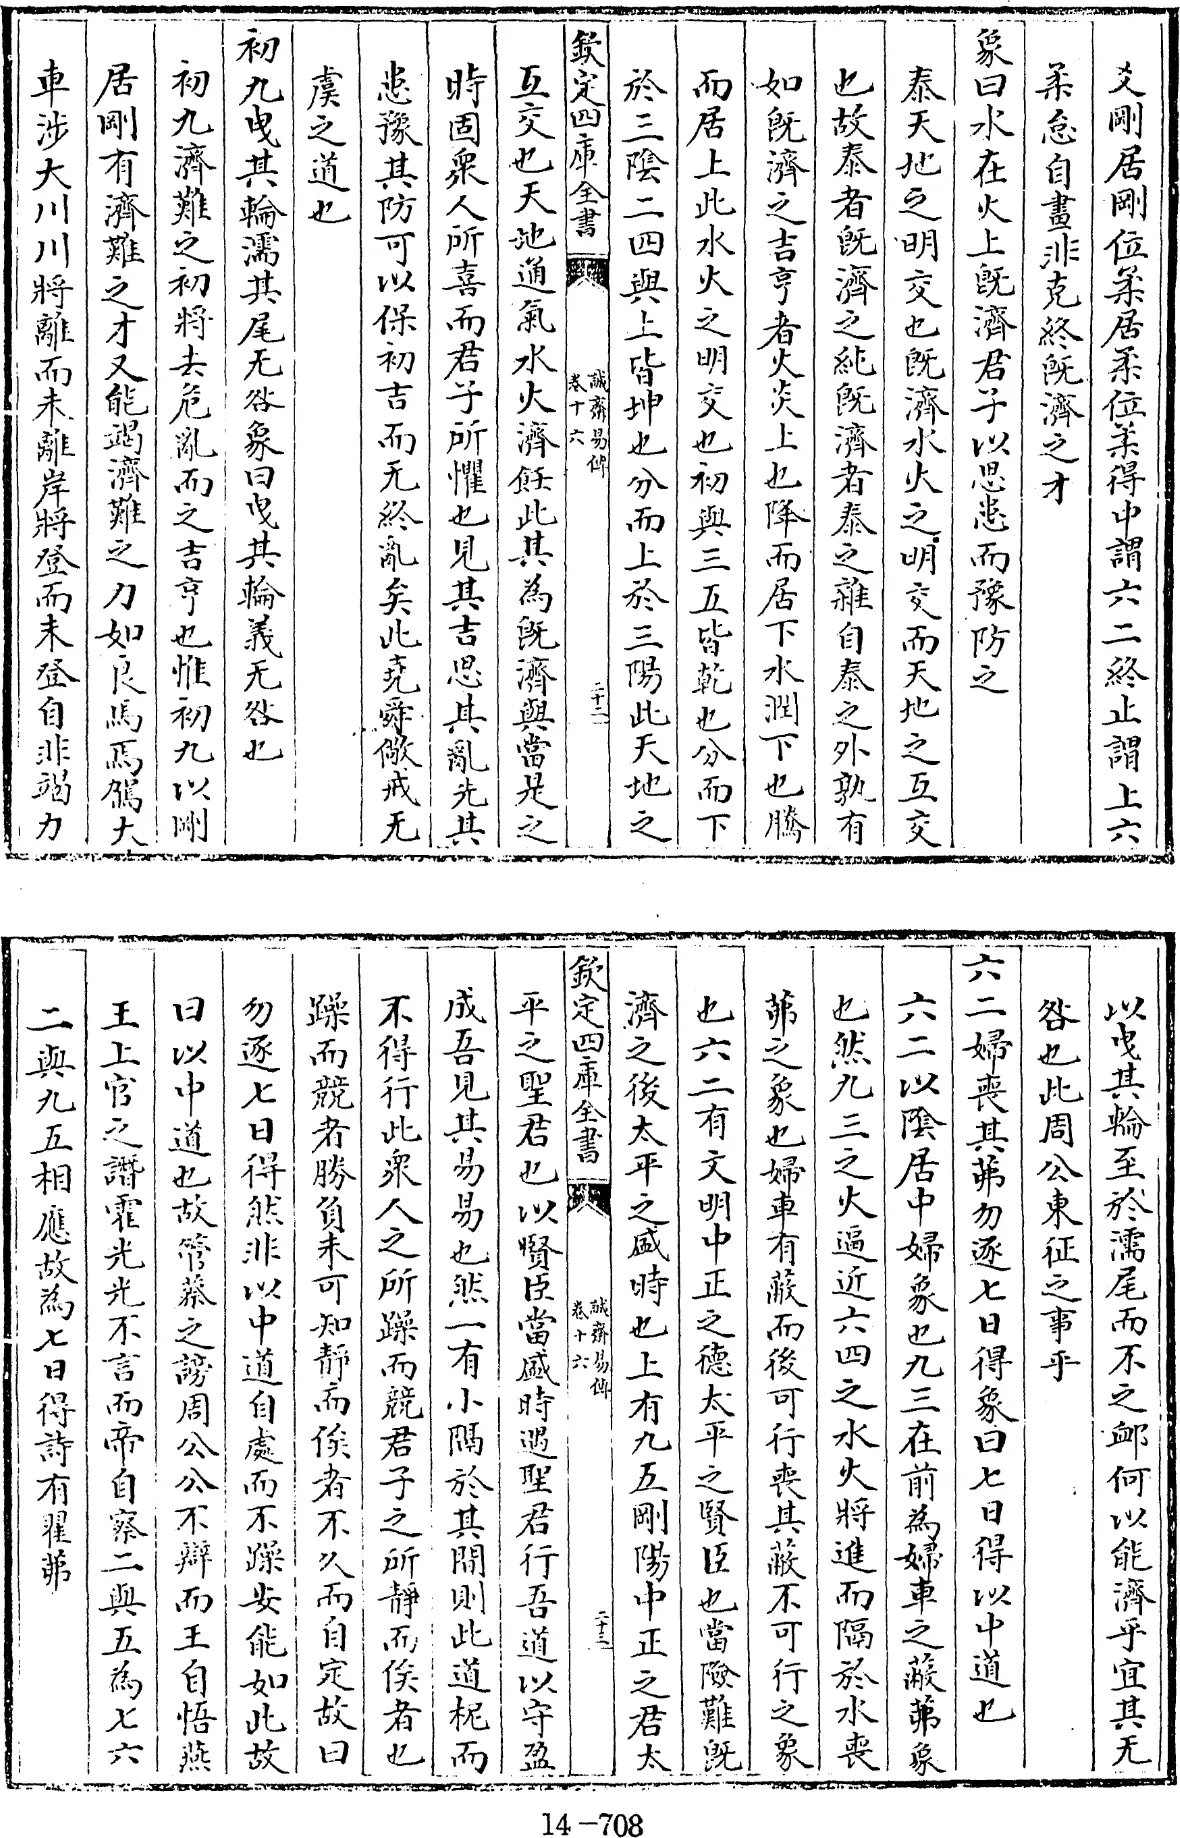 爻剛居剛位柔居柔位柔得中謂六二終止謂上六
柔怠自畫非克終旣濟之才
象曰水在火上旣濟君子以思患而豫防之
泰天地之明交也旣濟水火之明交而天地之互交
也故泰者旣濟之純旣濟者泰之雜自泰之外孰有
如旣濟之吉亨者火炎上也降而居下水潤下也騰
而居上此水火之明交也初與三五皆乾也分而下
於三陰二四與上皆坤也分而上於三陽此天地之
欽定四庫全書
誠齋易傳
卷十六
二十二
互交也天地通氣水火濟飪此其為旣濟與當是之
時固衆人所喜而君子所懼也見其吉思其亂先其
患豫其防可以保初吉而无終亂矣此堯舜儆戒无
虞之道也
初九曳其輪濡其尾无咎象曰曳其輪義无咎也
初九濟難之初將去危亂而之吉亨也惟初九以剛
居剛有濟難之才又能竭濟難之力如良馬焉駕大
車涉大川川將離而未離岸將登而未登自非竭力
以曳其輪至於濡尾而不之衈何以能濟乎宜其无
咎也此周公東征之事乎
六二婦喪其茀勿逐七日得象曰七日得以中道也
六二以陰居中婦象也九三在前為婦車之蔽茀象
也然九三之火逼近六四之水火將進而隔於水喪
茀之象也婦車有蔽而後可行喪其蔽不可行之象
也六二有文明中正之德太平之賢臣也當險難旣
濟之後太平之盛時也上有九五剛陽中正之君太
欽定四庫全書
誠齋易傳
卷十六
二十三
平之聖君也以賢臣當盛時遇聖君行吾道以守盈
成吾見其易易也然一有小隔於其間則此道柅而
不得行此衆人之所躁而競君子之所靜而俟者也
躁而競者勝負未可知靜而俟者不久而自定故曰
勿逐七日得然非以中道自處而不躁安能如此故
曰以中道也故管蔡之謗周公公不辯而王自悟燕
王上官之譖霍光光不言而帝自察二與五為七六
二與九五相應故為七日得詩有翟茀
14-708